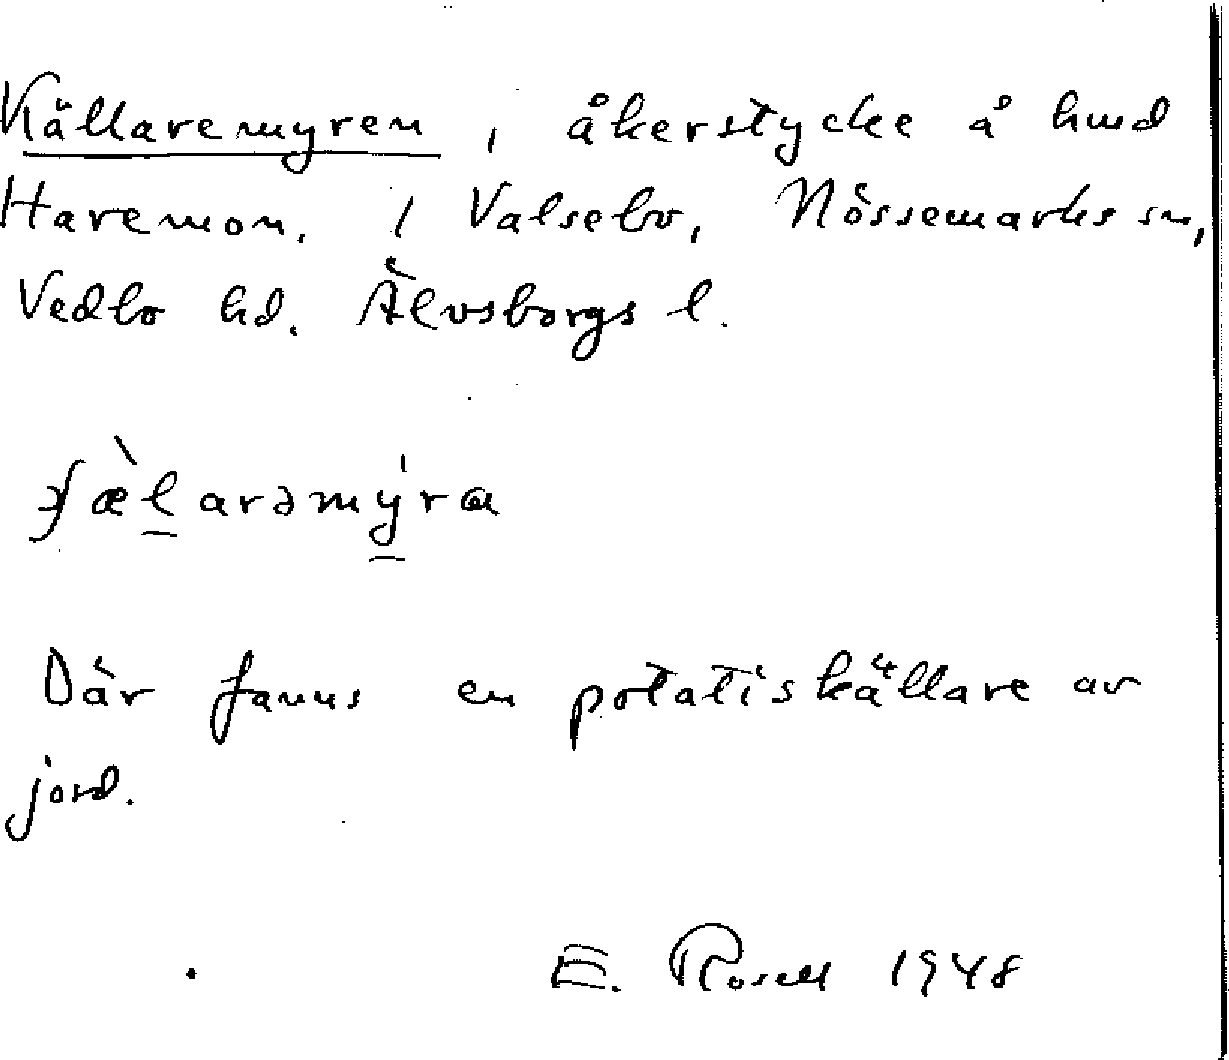 Källaremyren, åkerstycke å hmd
Haremon, 1 Valsebo, Nössemarks sn,
Vedbo hd. Älvsborgs l.
Där fanns en potatiskällare av
jord.
E. Rosell 1948